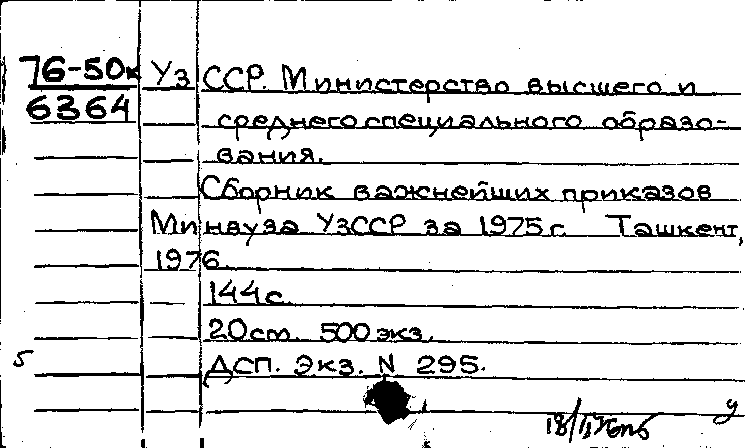 76-50к УзССР. Министерство высшего и
6364 среднего специального образо-
вания.
Сборник важнейших приказов
Минвуза УзССР за 1975 г. Ташкент,
1976.
144 с.
20 см. 500 экз.
5 ДСП. Экз. N 295.
у